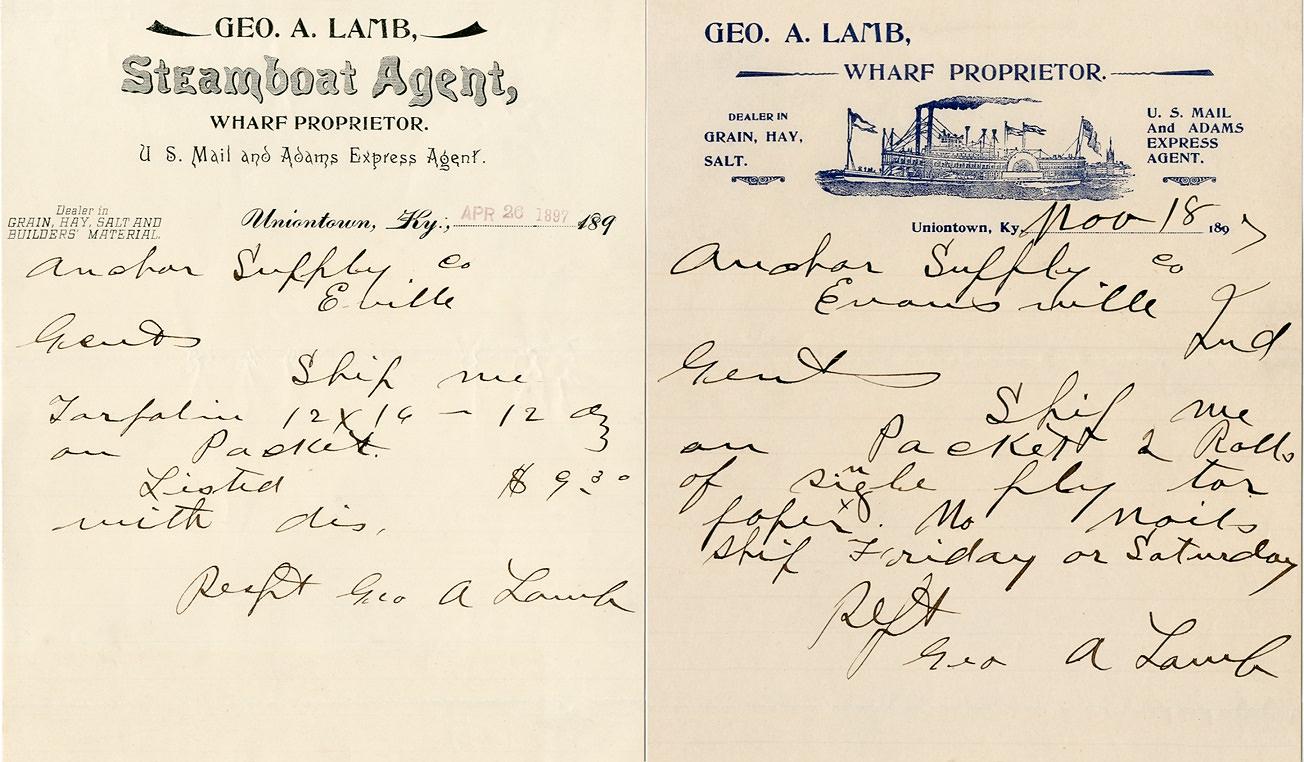 GEO. A. LAMB,
Steamboat Agent,
WHARF PROPRIETOR.
U S. Mail and Adams Express Agent.
Dealer in
GRAIN, HAY, SALT AND
BUILDERS' MATERIAL.
Uniontown, Ky., APR 26 1897 189
Anchor Supply Co
E.ville
Gents
Ship me
Tarpolin 12 x 16 – 12 oz
on Packet.
Listed $ 9.30
with dis.
Respt Geo A Lamb
GEO. A. LAMB,
WHARF PROPRIETOR.
DEALER IN
GRAIN, HAY,
SALT.
U. S. MAIL
And ADAMS
EXPRESS
AGENT.
Uniontown, Ky. Nov 18 1897
Anchor Supply Co
Evansville
Ind
Gents
Ship me
on Packett 2 Rolls
of single ply tar
paper. No nails
Ship Friday or Saturday
Rspt
Geo A Lamb